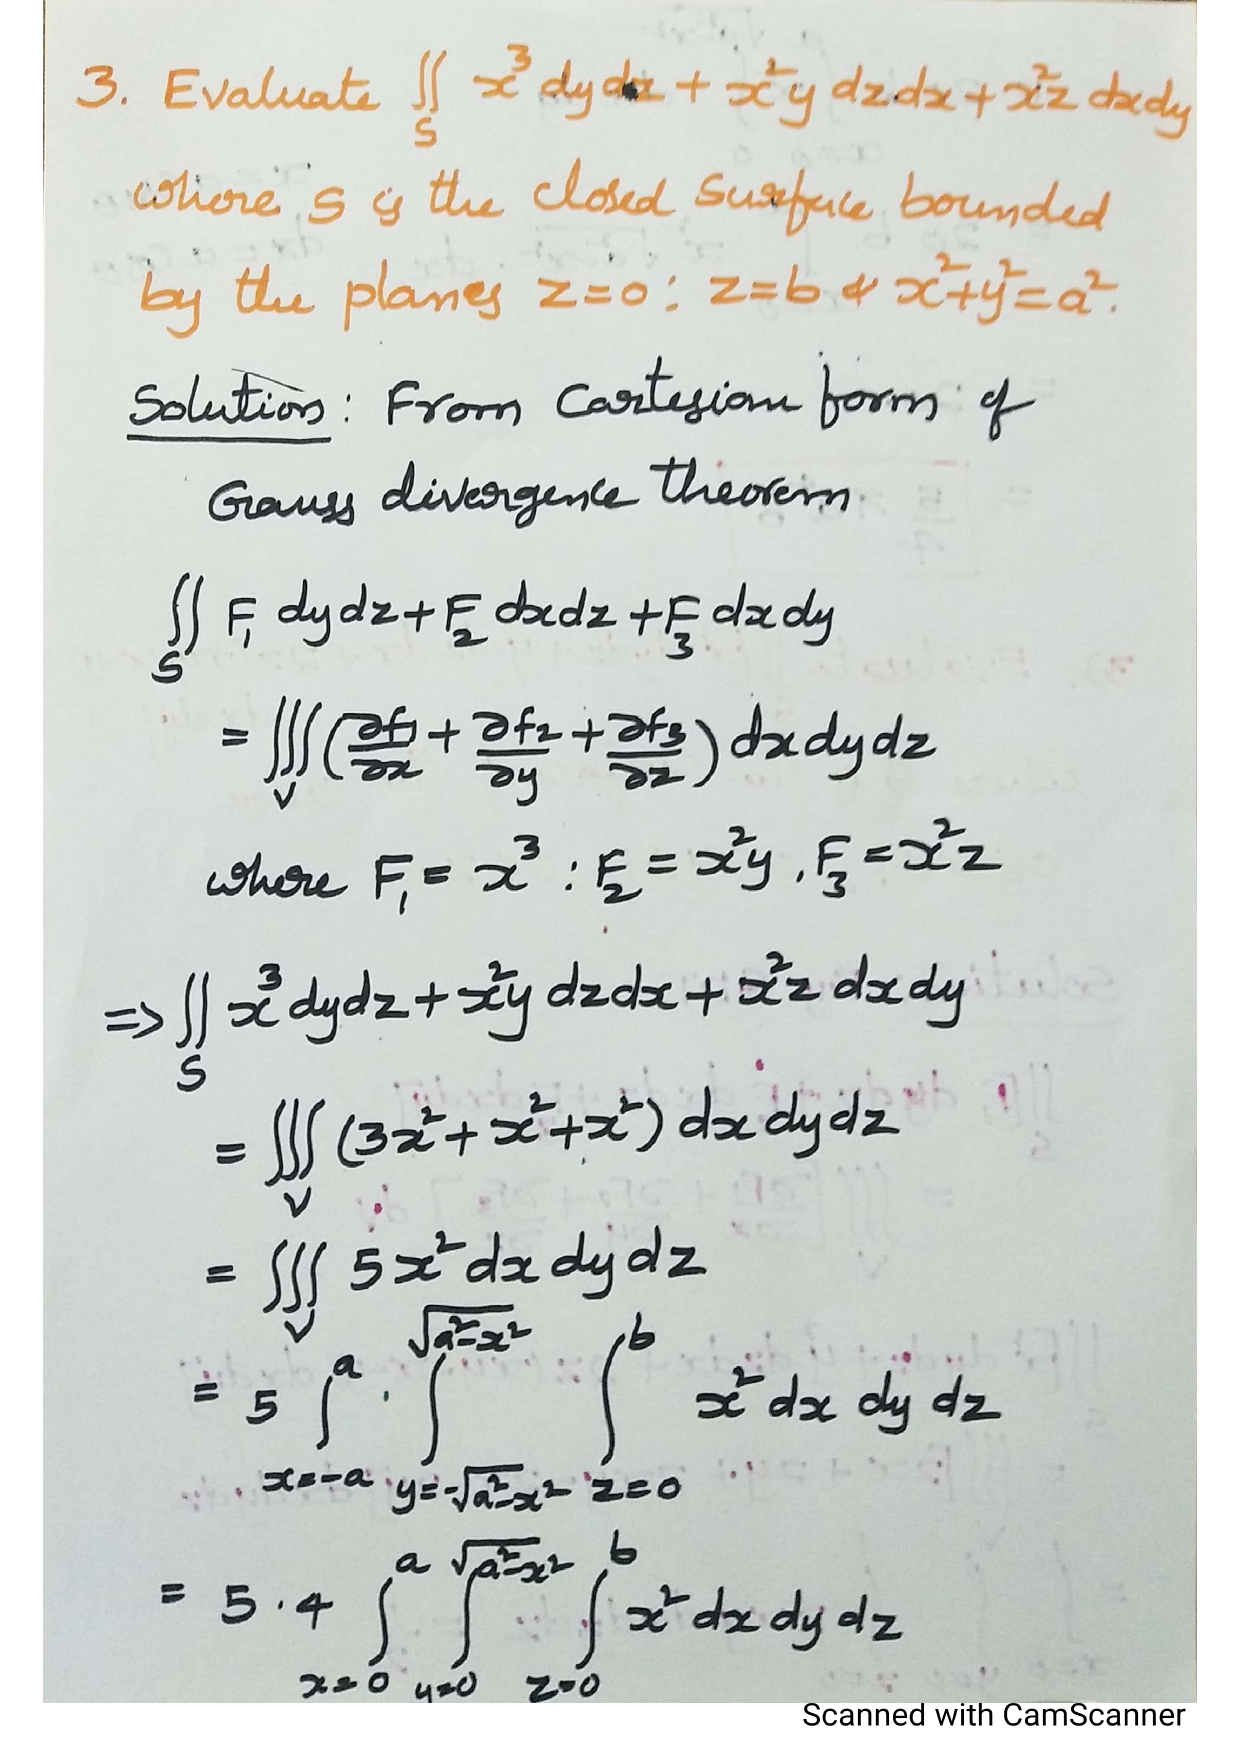 3. Evaluate ∬_S x³ dydz + x²y dzdx + x²z dxdy
where S is the closed surface bounded
by the planes z=0 : z=b & x²+y²=a².
Solution : From Cartesian form of
Gauss divergence theorem
∬_S F₁ dydz + F₂ dxdz + F₃ dxdy
= ∭_V (∂f₁/∂x + ∂f₂/∂y + ∂f₃/∂z) dxdydz
where F₁ = x³ : F₂ = x²y , F₃ = x²z
⇒ ∬_S x³ dydz + x²y dzdx + x²z dxdy
= ∭_V (3x² + x² + x²) dxdydz
= ∭_V 5x² dx dy dz
= 5 ∫_{x=-a}^{a} ∫_{y=-√(a²-x²)}^{√(a²-x²)} ∫_{z=0}^{b} x² dx dy dz
= 5·4 ∫_{x=0}^{a} ∫_{y=0}^{√(a²-x²)} ∫_{z=0}^{b} x² dx dy dz
Scanned with CamScanner